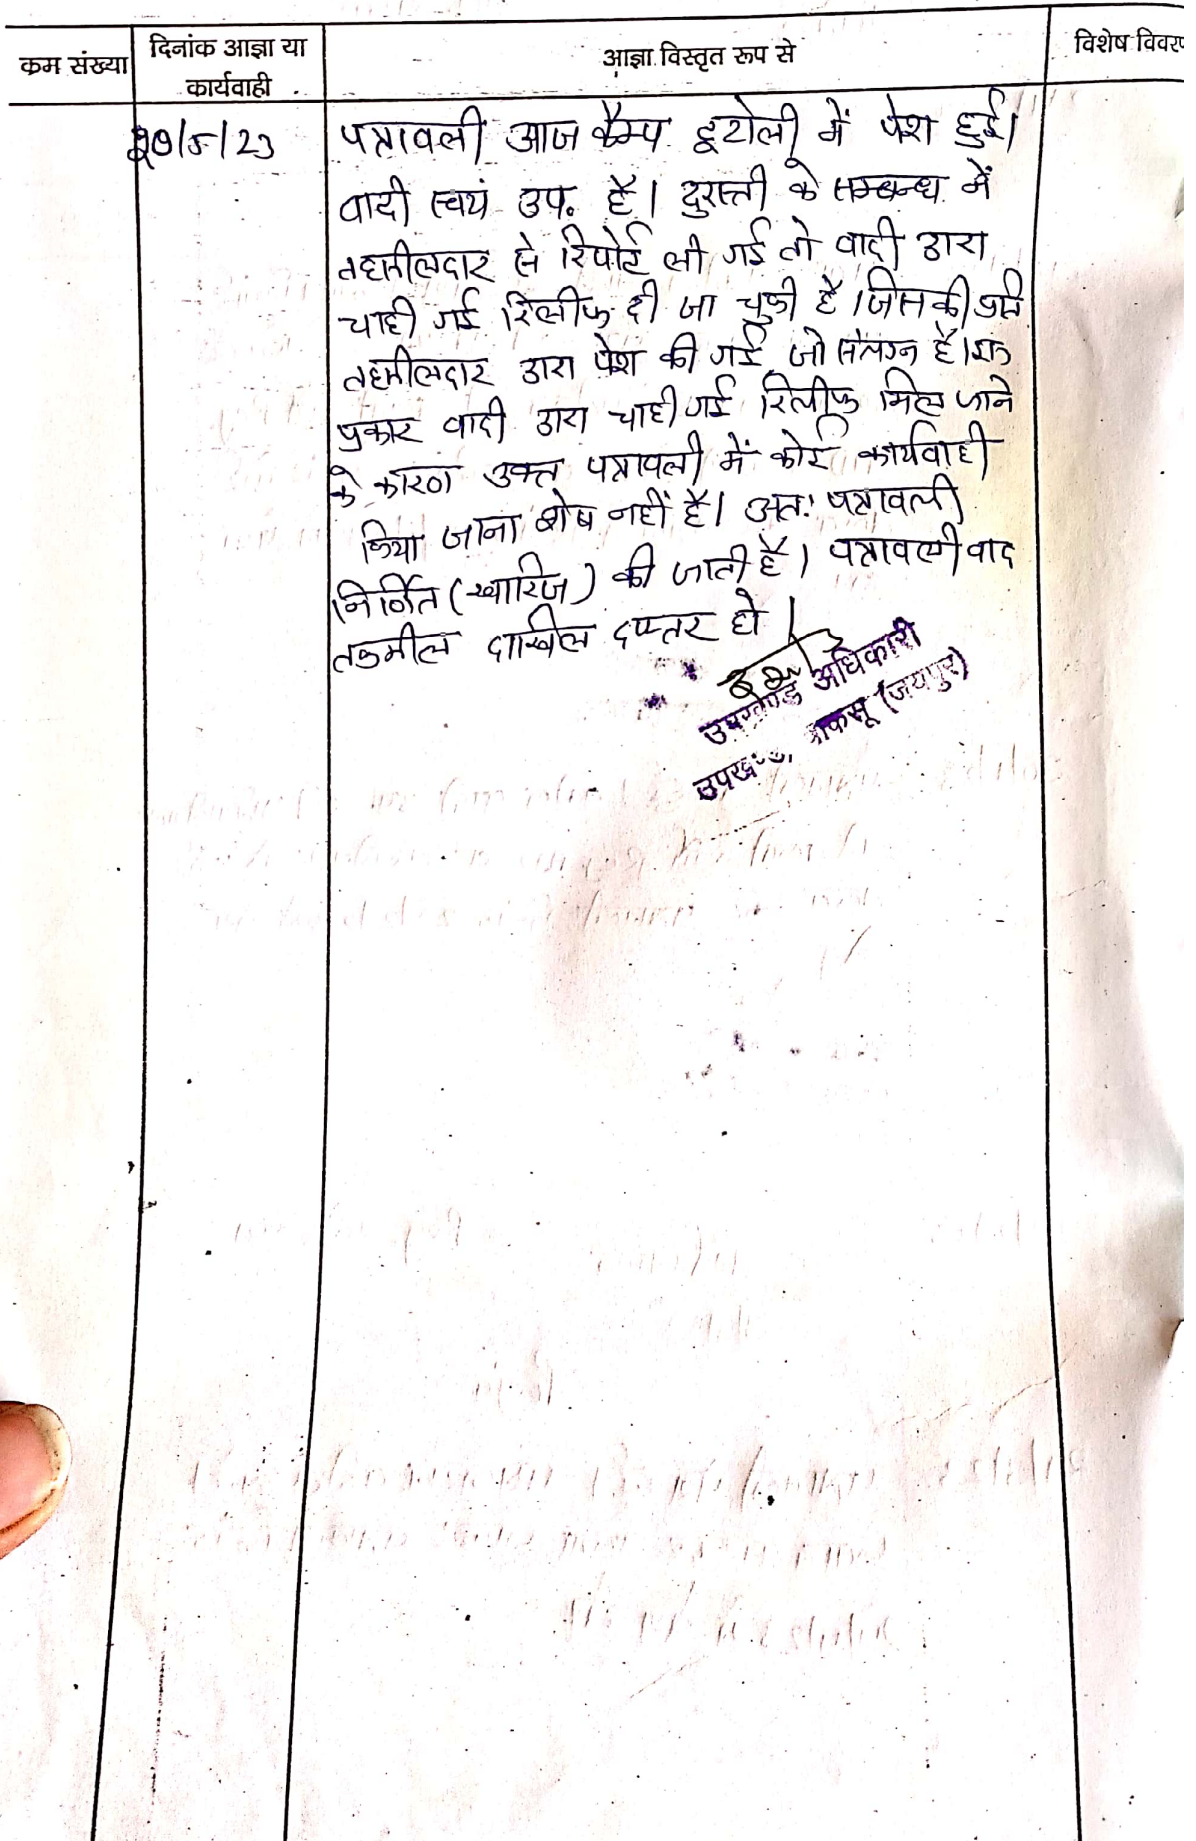 कम संख्या
दिनांक आज्ञा या
कार्यवाही
आज्ञा विस्तृत रूप से
विशेष विवर
/5/23
पत्रावली आज कैम्प इटोली में पेश हुई।
वादी स्वयं उप. है। दुरुस्ती के सम्बन्ध में
तहसीलदार से रिपोर्ट ली गई तो वादी द्वारा
चाही गई रिलीफ दी जा चुकी है। जिसकी प्रति
तहसीलदार द्वारा पेश की गई जो संलग्न है। इस
प्रकार वादी द्वारा चाही गई रिलीफ मिल जाने
के कारण उक्त पत्रावली में कोई कार्यवाही
किया जाना शेष नहीं है। अतः पत्रावली
निर्णित (खारिज) की जाती है। पत्रावली वाद
तकमील दाखिल दफ्तर हो।
उपखण्ड अधिकारी
चाकसू (जयपुर)